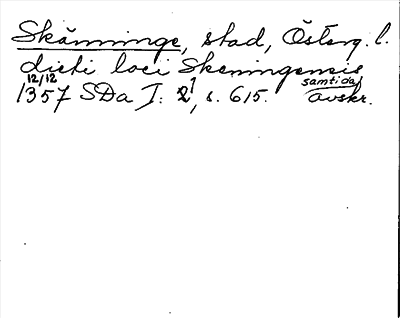 Skänninge, stad, Österg. l.
dicti loci Skeningensis
12/12 samtida
1357 SDa I: 2, s. 615. avskr.